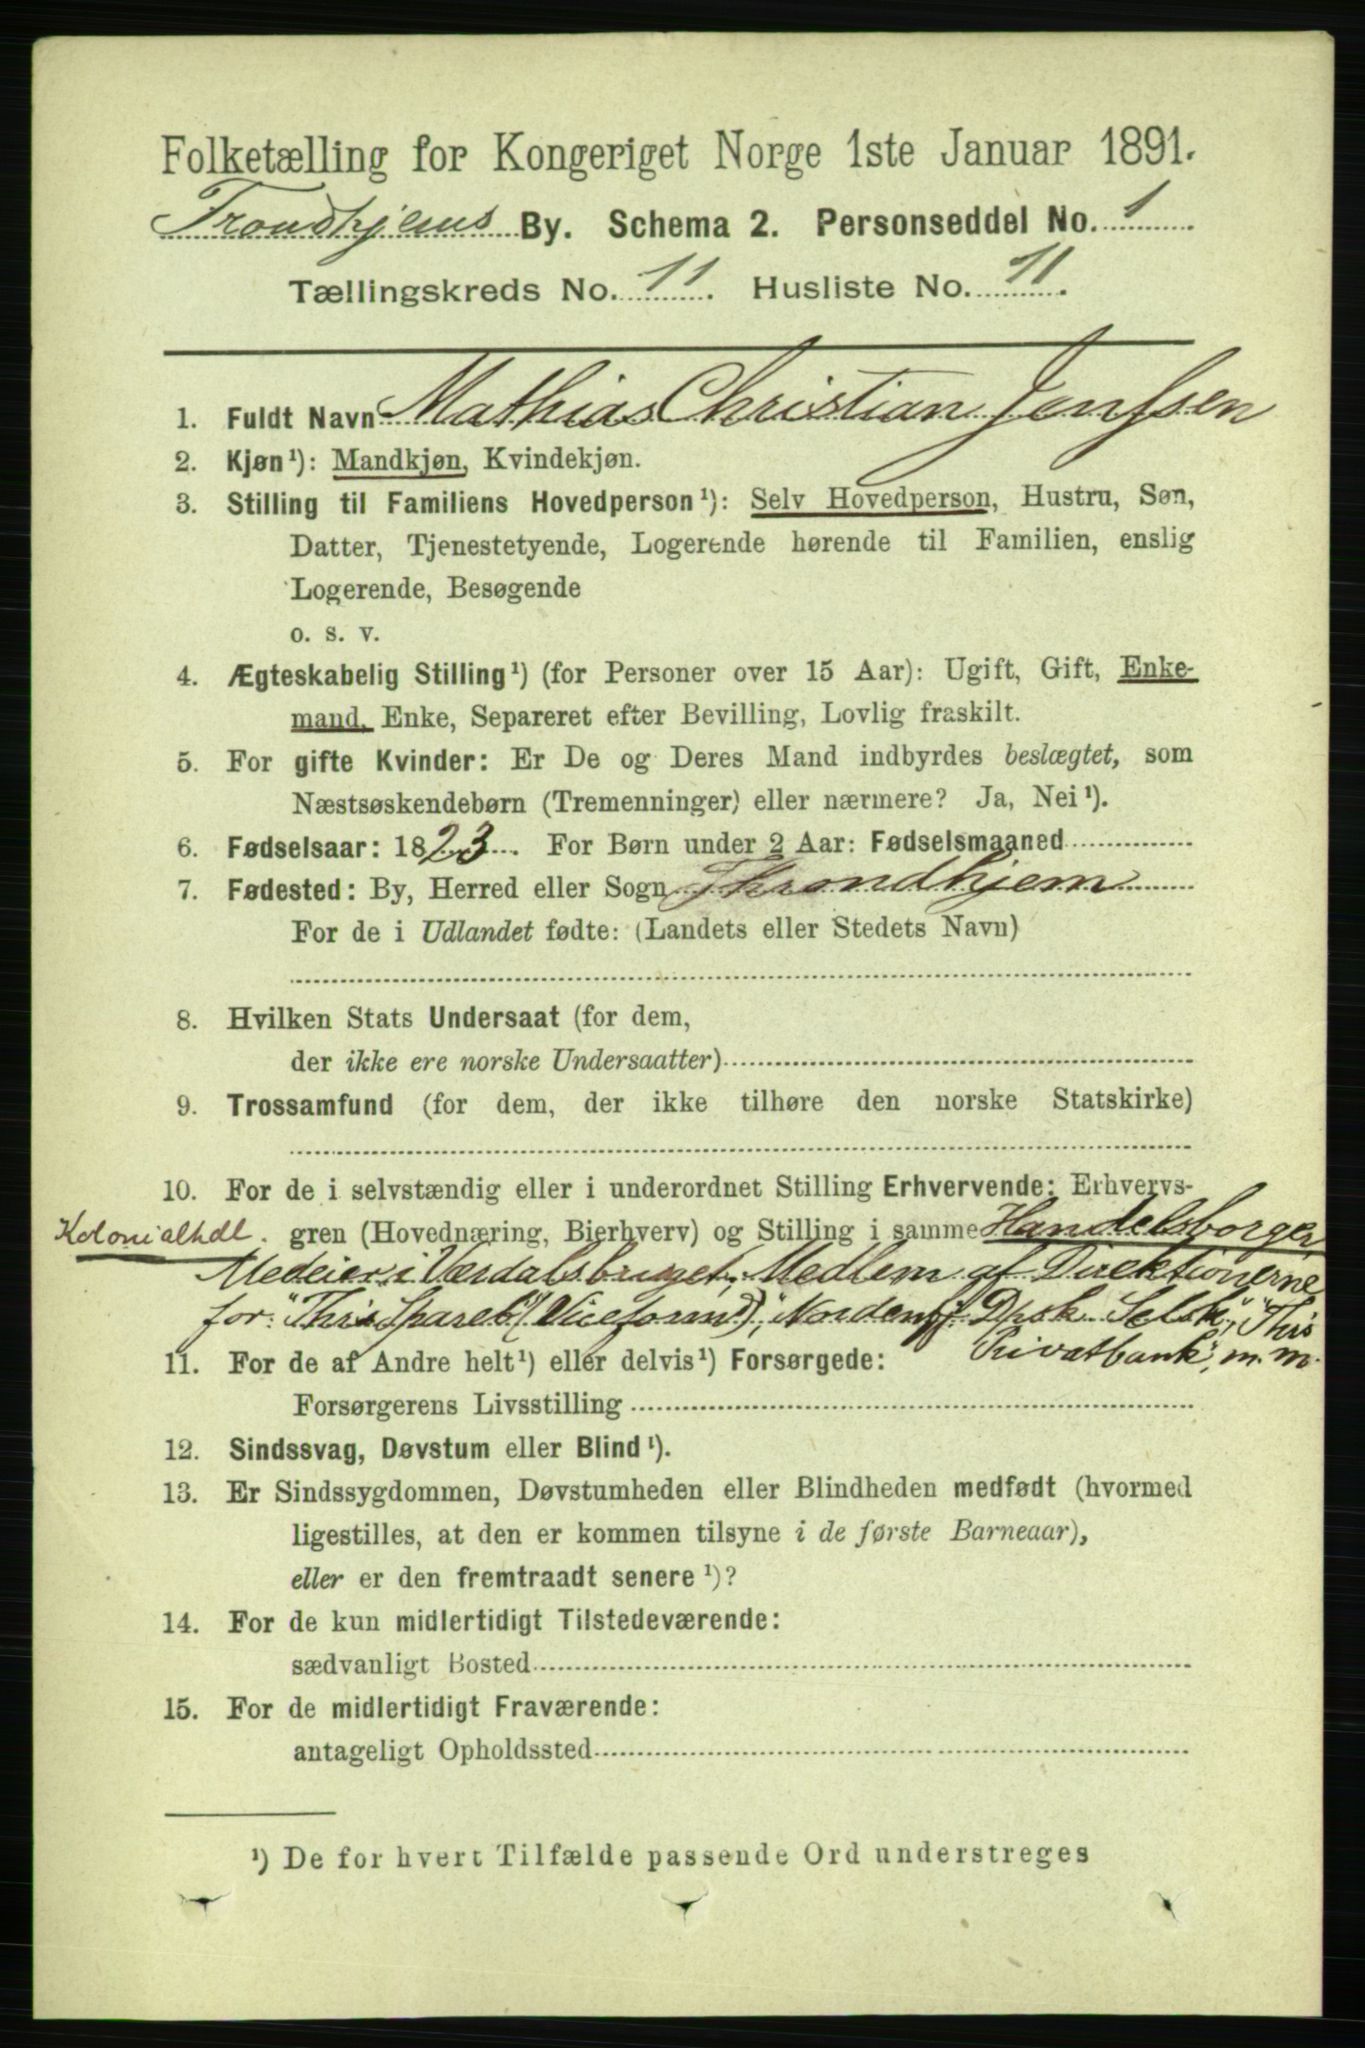 Folketælling for Kongeriget Norge 1ste Januar 1891.
Trondhjems By. Schema 2. Personseddel No. 1
Tællingskreds No. 11. Husliste No. 11.
1. Fuldt Navn Mathias Christian Jenssen
2. Kjøn¹): Mandkjøn, Kvindekjøn.
3. Stilling til Familiens Hovedperson¹): Selv Hovedperson, Hustru, Søn,
Datter, Tjenestetyende, Logerende hørende til Familien, enslig
Logerende, Besøgende
o. s. v.
4. Ægteskabelig Stilling¹) (for Personer over 15 Aar): Ugift, Gift, Enke-
mand, Enke, Separeret efter Bevilling, Lovlig fraskilt.
5. For gifte Kvinder: Er De og Deres Mand indbyrdes beslægtet, som
Næstsøskendebørn (Tremenninger) eller nærmere? Ja, Nei¹).
6. Fødselsaar: 1823. For Børn under 2 Aar: Fødselsmaaned
7. Fødested: By, Herred eller Sogn Throndhjem
For de i Udlandet fødte: (Landets eller Stedets Navn)
8. Hvilken Stats Undersaat (for dem,
der ikke ere norske Undersaatter)
9. Trossamfund (for dem, der ikke tilhøre den norske Statskirke)
10. For de i selvstændig eller i underordnet Stilling Erhvervende: Erhvervs-
Kolonialhdl. gren (Hovednæring, Bierhverv) og Stilling i samme Handelsborger,
Medeier i Værdalsbruget, Medlem af Direktionerne
for "Thjs Spareb" (Viceformd), "Nordenfj. Dpsk. Selsk", "Thjs
Privatbank", m. m.
11. For de af Andre helt¹) eller delvis¹) Forsørgede:
Forsørgerens Livsstilling
12. Sindssvag, Døvstum eller Blind¹).
13. Er Sindssygdommen, Døvstumheden eller Blindheden medfødt (hvormed
ligestilles, at den er kommen tilsyne i de første Barneaar),
eller er den fremtraadt senere¹)?
14. For de kun midlertidigt Tilstedeværende:
sædvanligt Bosted
15. For de midlertidigt Fraværende:
antageligt Opholdssted
¹) De for hvert Tilfælde passende Ord understreges